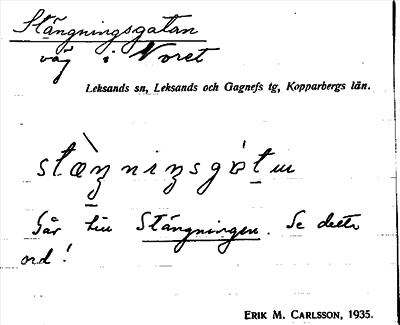 Stängningsgatan
väg i Noret
Leksands sn, Leksands och Gagnefs tg, Kopparbergs län.
stæŋniŋsgɒtn
Går till Stängningen. Se detta
ord!
ERIK M. CARLSSON, 1935.